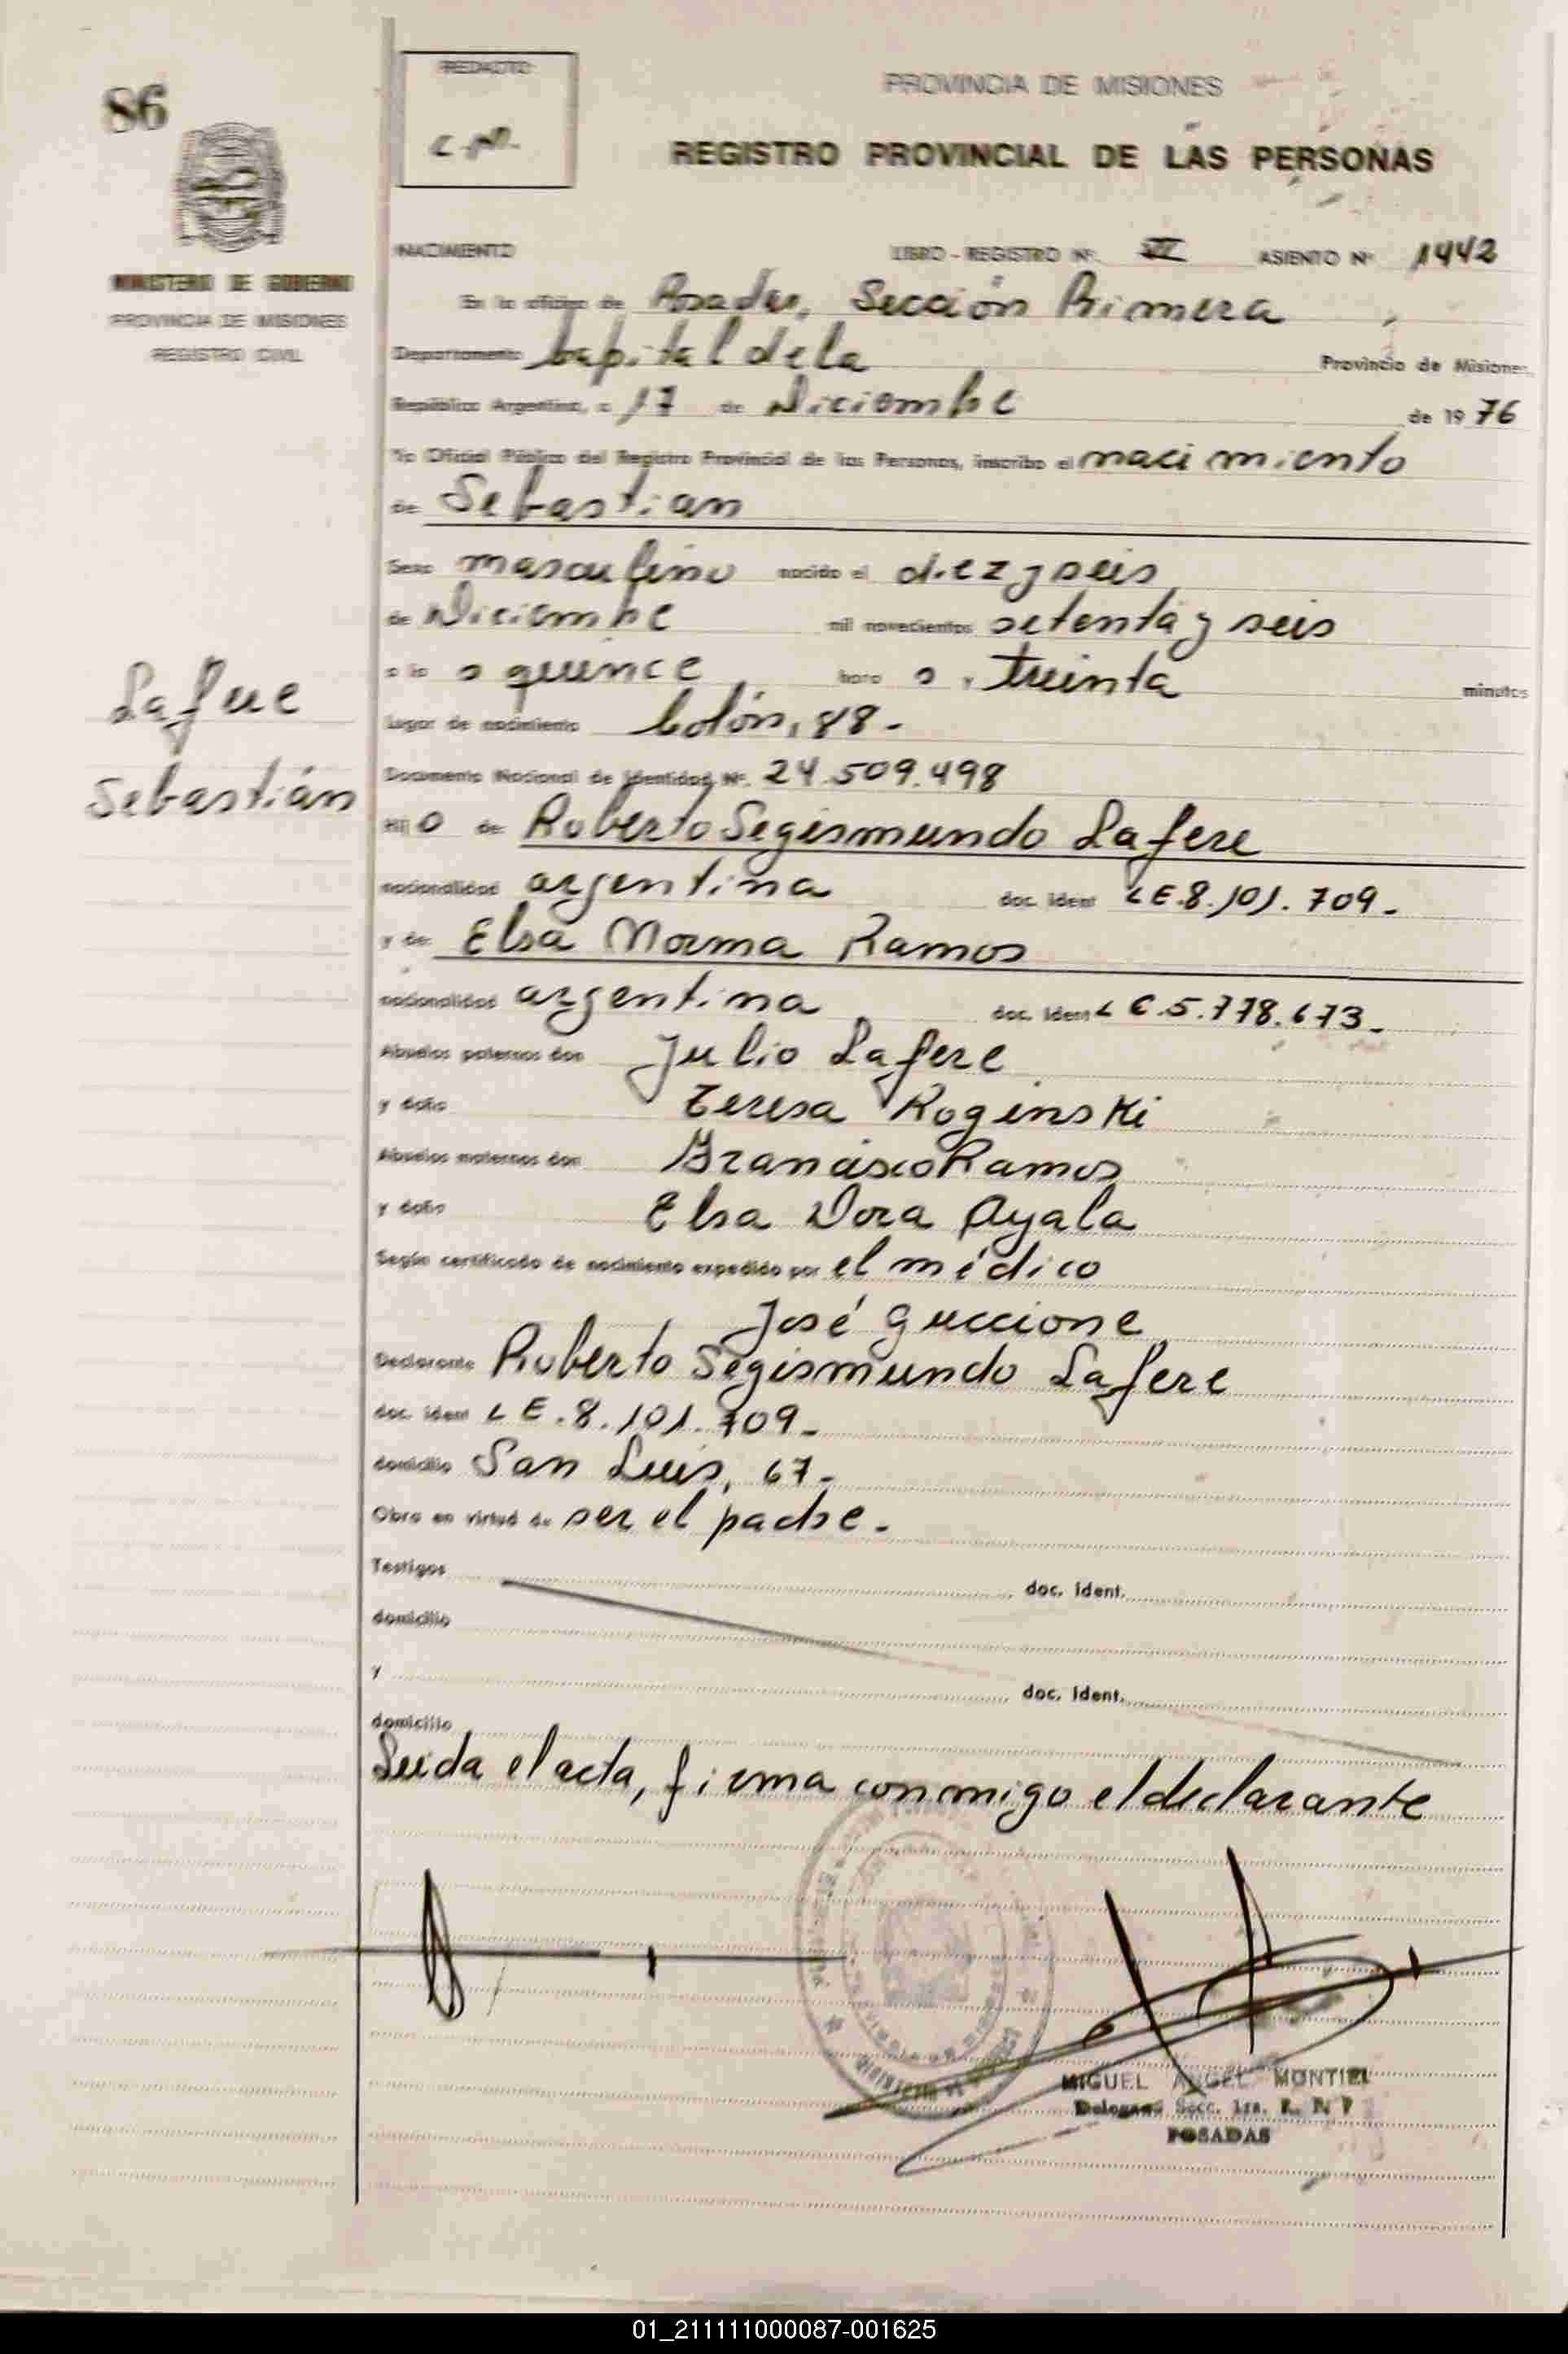 86
REDACTO
PROVINCIA DE MISIONES
REGISTRO PROVINCIAL DE LAS PERSONAS
MINISTERIO DE GOBIERNO
PROVINCIA DE MISIONES
REGISTRO CIVIL
NACIMIENTO LIBRO - REGISTRO Nº. ASIENTO Nº 1442
En la oficina de Posadas, Sección Primera
Departamento Capital de la Provincia de Misiones,
República Argentina, a 17 de Diciembre de 1976
Yo Oficial Público del Registro Provincial de las Personas, inscribo el nacimiento
de Sebastian
Sexo masculino nacido el diez y seis
de Diciembre mil novecientos setenta y seis
a la s quince hora s y treinta minutos
Lafere
Sebastián
Lugar de nacimiento Colón, 88.-
Documento Nacional de Identidad Nº. 24.509.498
Hij o de Roberto Segismundo Lafere
nacionalidad argentina doc. ident LE.8.101.709.-
y de Elsa Norma Ramos
nacionalidad argentina doc. ident L C.5.778.673.-
Abuelos paternos don Julio Lafere
y doña Teresa Roginski
Abuelos maternos don Francisco Ramos
y doña Elsa Dora Ayala
Según certificado de nacimiento expedido por el médico
José Guccione
Declarante Roberto Segismundo Lafere
doc. ident L E.8.101.709.-
domicilio San Luis, 67.-
Obra en virtud de ser el padre.-
Testigos doc. ident.
domicilio
y doc. ident.
domicilio
Leida el acta, firma conmigo el declarante
MIGUEL ANGEL MONTIEL
Delegado Secc. 1ra. R. P. P
POSADAS
01_211111000087-001625